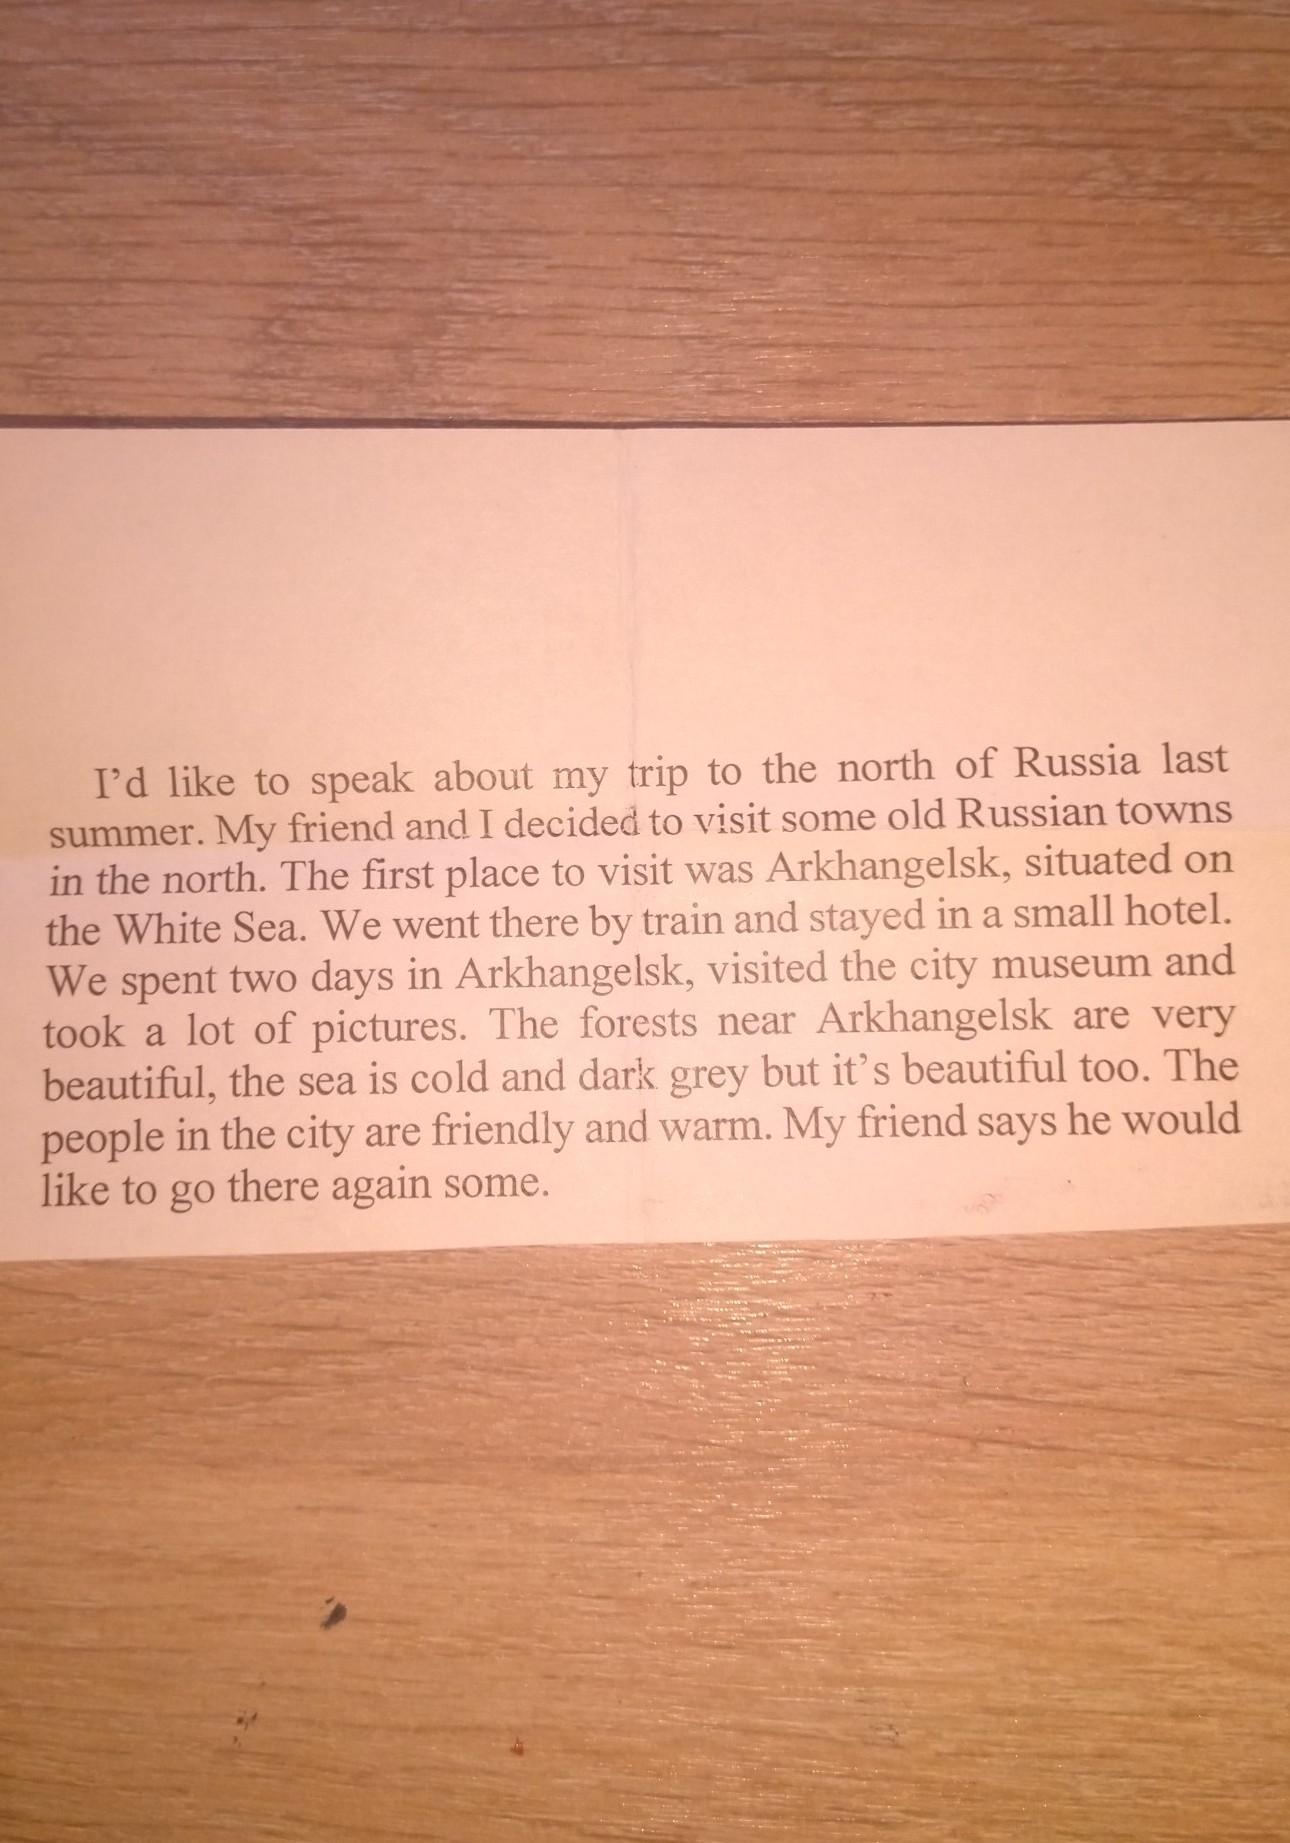 I’d like to speak about my trip to the north of Russia last
summer. My friend and I decided to visit some old Russian towns
in the north. The first place to visit was Arkhangelsk, situated on
the White Sea. We went there by train and stayed in a small hotel.
We spent two days in Arkhangelsk, visited the city museum and
took a lot of pictures. The forests near Arkhangelsk are very
beautiful, the sea is cold and dark grey but it’s beautiful too. The
people in the city are friendly and warm. My friend says he would
like to go there again some.